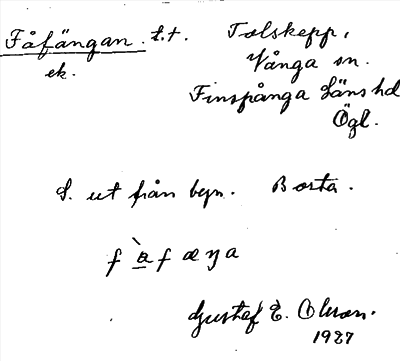 Fåfängan. t.t. Tolskepp,
ek. Vånga sn.
Finspånga läns hd
Ögl.
S. ut från byn. Borta.
fàfæŋa
Gustaf E. Olson.
1927